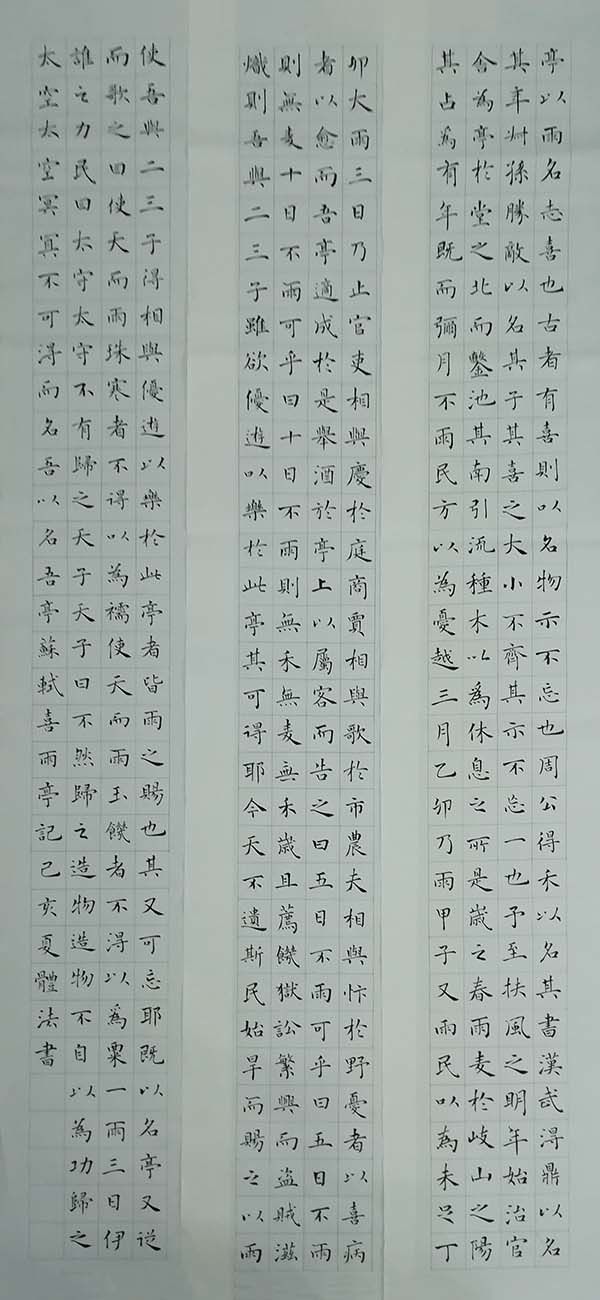 亭以雨名志喜也古者有喜則以名物示不忘也周公得禾以名其書漢武得鼎以名
其年叔孫勝敵以名其子其喜之大小不齊其示不忘一也予至扶風之明年始治官
舍為亭於堂之北而鑿池其南引流種木以為休息之所是歲之春雨麦於岐山之陽
其占為有年既而彌月不雨民方以為憂越三月乙卯乃雨甲子又雨民以為未足丁
卯大雨三日乃止官吏相與慶於庭商賈相與歌於市農夫相與忭於野憂者以喜病
者以愈而吾亭適成於是舉酒於亭上以屬客而告之曰五日不雨可乎曰五日不雨
則無麦十日不雨可乎曰十日不雨則無禾無麦無禾歲且薦饑獄訟繁興而盜賊滋
熾則吾與二三子雖欲優遊以樂於此亭其可得耶今天不遺斯民始旱而賜之以雨
使吾與二三子得相與優遊以樂於此亭者皆雨之賜也其又可忘耶既以名亭又從
而歌之曰使天而雨珠寒者不得以為襦使天而雨玉饑者不得以為粟一雨三日伊
誰之力民曰太守太守不有歸之天子天子曰不然歸之造物造物不自以為功歸之
太空太空冥冥不可得而名吾以名吾亭蘇軾喜雨亭記己亥夏體法書